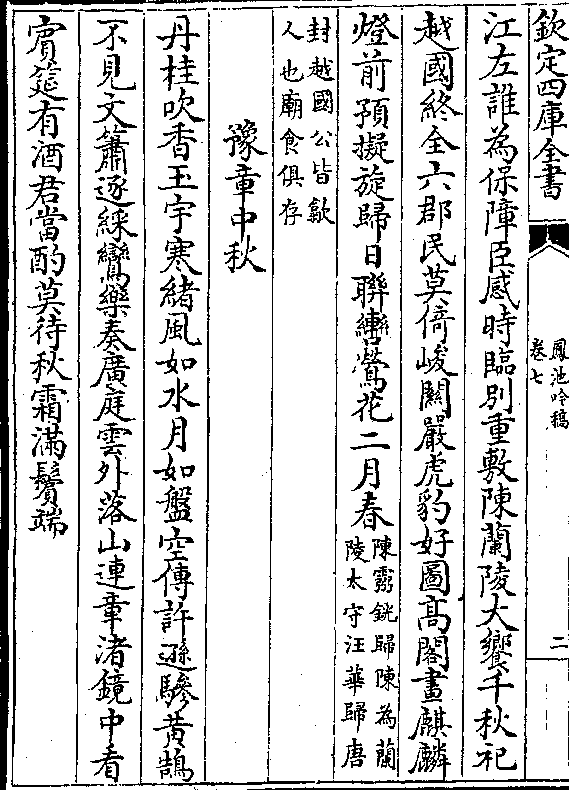 欽定四庫全書
鳳池吟稿
卷七
二
江左誰為保障臣感時臨別重敷陳蘭陵大饗千秋祀
越國終全六郡民莫倚峻關嚴虎豹好圖高閣畫麒麟
燈前預擬旋歸日聯轡鶯花二月春陳霧銑歸陳為蘭陵太守汪華歸唐
封越國公皆歙人也廟食俱存
豫章中秋
丹桂吹香玉宇寒緒風如水月如盤空傳許遜驂黃鵠
不見文簫逐綵鸞樂奏廣庭雲外落山連章渚鏡中看
賓筵有酒君當酌莫待秋霜滿鬢端